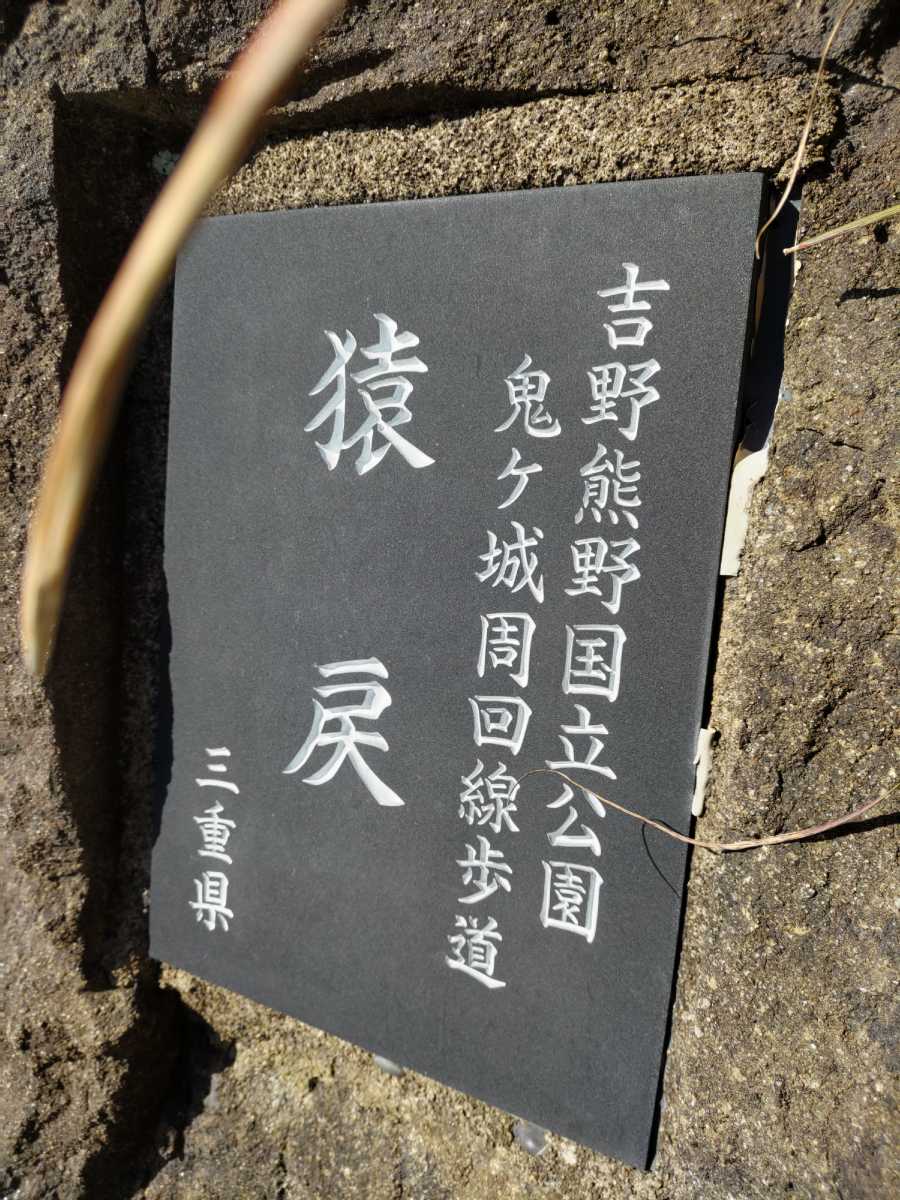 吉野熊野国立公園
鬼ケ城周回線歩道
猿戻
三重県